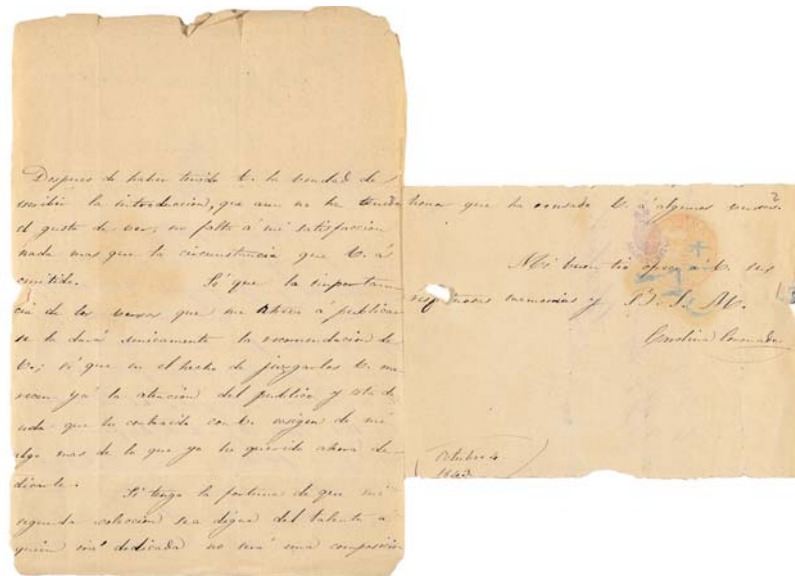 Despues de haber tenido V. la bondad de
escribir la introduccion, que aun no he tenido
el gusto de ver, no falta á mi satisfaccion
nada mas que la circunstancia que V. á
omitido. Sé que la importan
cia de los versos que me atrevo á publicar
se la dará unicamente la recomendacion de
V.; sé que en el hecho de juzgarlos V. me
recen ya la atencion del publico y esta de
uda que he contraido con V. exigen de mi
algo mas de lo que yo he querido ahora de
dicarle. Si tengo la fortuna de que mi
segunda coleccion sea digna del talento á
quien irá dedicada no será una composicion
2
honor que ha causado V. á algunos versos.
Mi buen tio á V. sus
respetuosas memorias y B. S. M.
Carolina Coronado
Octubre 4